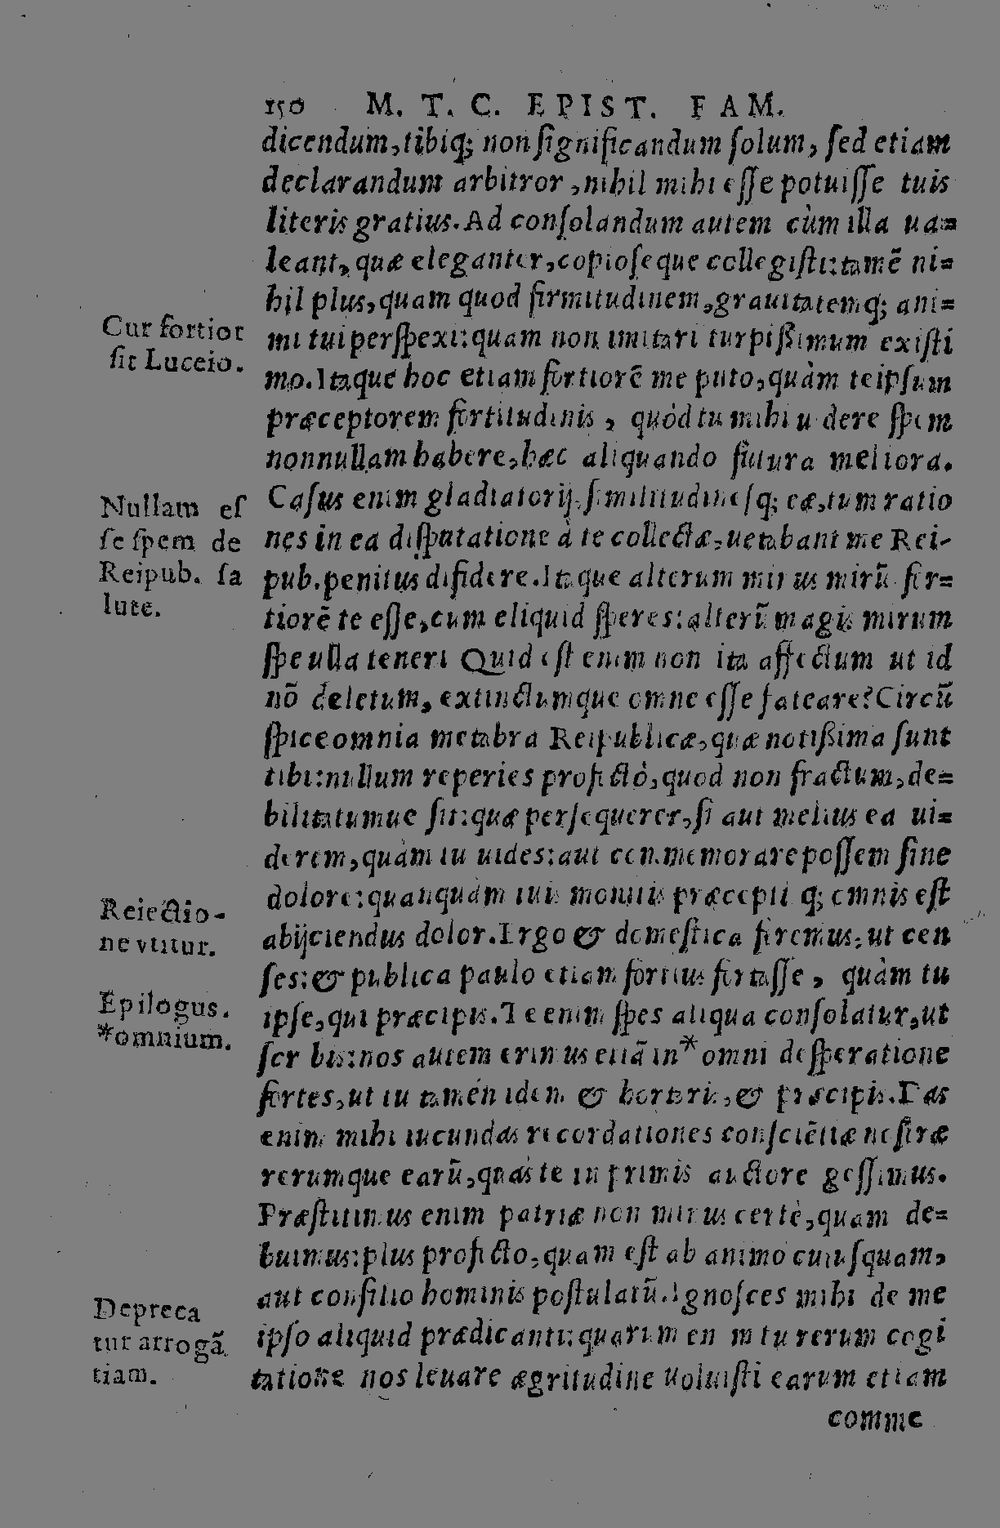 150 M. T. C. EPIST. FAM.
dicendum, tibiq; non ſignificandum ſolum, ſed etiam
declarandum arbitror, nihil mihi eſſe potuiſſe tuis
literis gratius. Ad conſolandum autem cùm illa ua=
leant, quæ eleganter, copioſeque collegiſti: tamẽ ni=
hil plus, quam quod firmitudinem, grauitatemq; ani=
Cur fortior
ſit Luceio.
mi tui perſpexi: quam non imitari turpißimum exiſti
mo. Itaque hoc etiam fortiorẽ me puto, quàm teipſum
præceptorem fortitudinis, quòd tu mihi uidere ſpem
nonnullam habere, hæc aliquando futura meliora.
Nullam eſ
ſe ſpem de
Reipub. ſa
lute.
Caſus enim gladiatorij, ſimilitudineſq; eæ, tum ratio
nes in ea diſputatione à te collectæ, uetabant me Rei-
pub. penitus difidere. Itaque alterum minus mirũ fir=
tiorẽ te eſſe, cum eliquid ſperes: alterũ magis mirum
ſpe ulla teneri Quid eſt enim non ita affectum ut id
nõ deletum, extinctumque omne eſſe fateare? Circũ
ſpice omnia metabra Reipublicæ, quæ notißima ſunt
tibi: nullum reperies profictò, quod non fractum, de=
bilitatumue ſit: quæ perſequerer, ſi aut melius ea ui=
derem, quàm tu uides: aut commemorare poſſem ſine
Reiectio-
ne vtitur.
dolore: quanquàm tuis monitis præceptiſq; omnis eſt
abijciendus dolor. Ergo & domeſtica feremus, ut cen
ſes: & publica paulo etiam fortius fortaſſe, quàm tu
Epilogus.
*omnium.
ipſe, qui præcipis. Te enim ſpes aliqua conſolatur, ut
ſcribis: nos autem erimus etiã in* omni deſperatione
fortes, ut tu tamén idem & hortaris, & præcipis. Das
enim mihi iucundas recordationes conſciẽtiæ noſtræ
rerumque earũ, quas te in primis auctore geſſimus.
Præſtitimus enim patriæ non minus certè, quam de=
buimus: plus profecto, quam eſt ab animo cuiuſquam,
Depreca
tur arrogã
tiam.
aut conſilio hominis poſtulatũ. Ignoſces mihi de me
ipſo aliquid prædicanti: quarum enim tu rerum cogi
tatione nos leuare ægritudine uoluiſti earum etiam
comme